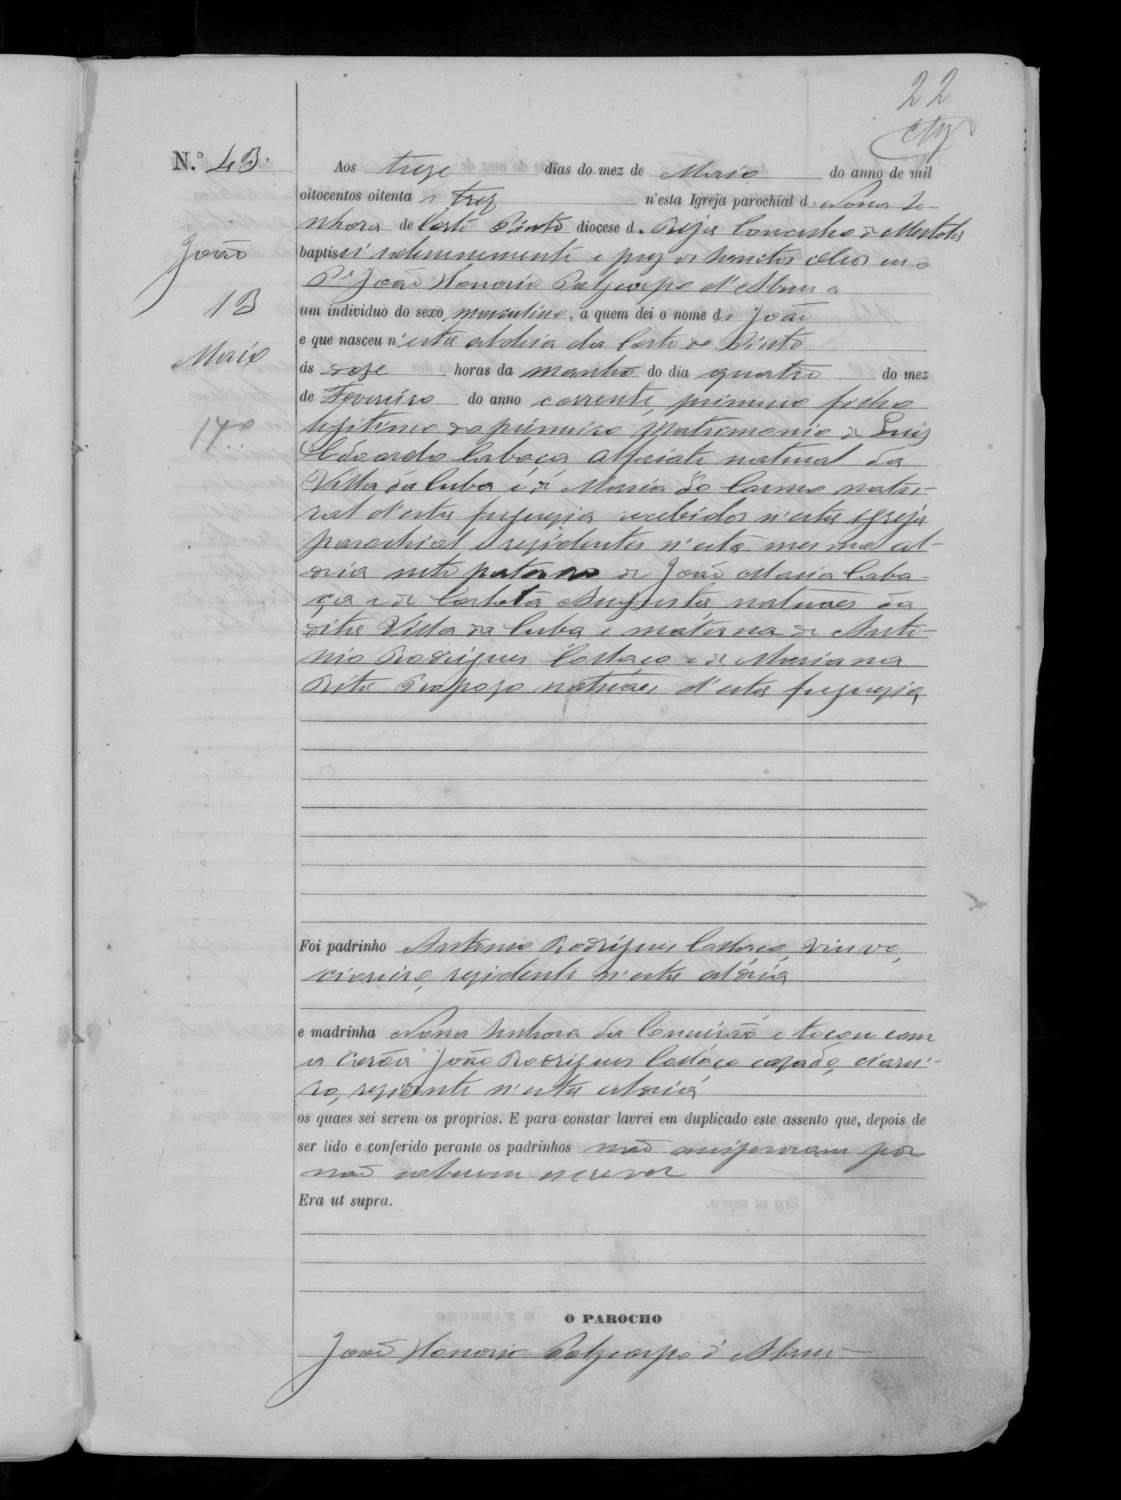 22
N.º 43.
Aos treze dias do mez de Maio do anno de mil
oitocentos oitenta e trez n'esta Igreja parochial de Nossa Se-
nhora de Corte Pinto diocese de Beja Concelho de Mertola
baptisei solemnemente e puz os Santos oleos eu o
P.e João Honorio Polycarpo d'Abreu a
um individuo do sexo masculino, a quem dei o nome de João
e que nasceu n'esta aldeia da Corte do Pinto
ás doze horas da manhã do dia quatro do mez
de Fevereiro do anno corrente, primeiro filho
legitimo do primeiro matrimonio de Luis
Eduardo Cabaça Alfaiate natural da
Villa da Cuba e de Maria do Carmo natu-
ral d'esta freguezia recebidos n'esta egreja
parochial e rezidentes n'esta mesma al-
deia neto paterno de João Maria Caba-
ça e de Augusta naturaes da
dita Villa da Cuba e materna de Anto-
nio Rodrigues e de Marianna
Rita naturaes d'esta freguezia
João
13
Maio
14.º
Foi padrinho Antonio Rodrigues viuvo,
rezidente n'esta aldeia
e madrinha Nossa Senhora da Conceição e tocou com
a Corôa João Rodrigues cazado,
ro, rezidente n'esta aldeia
os quaes sei serem os proprios. E para constar lavrei em duplicado este assento que, depois de
ser lido e conferido perante os padrinhos não assignaram por
não saberem escrever
Era ut supra.
O PAROCHO
João Honorio Polycarpo d'Abreu